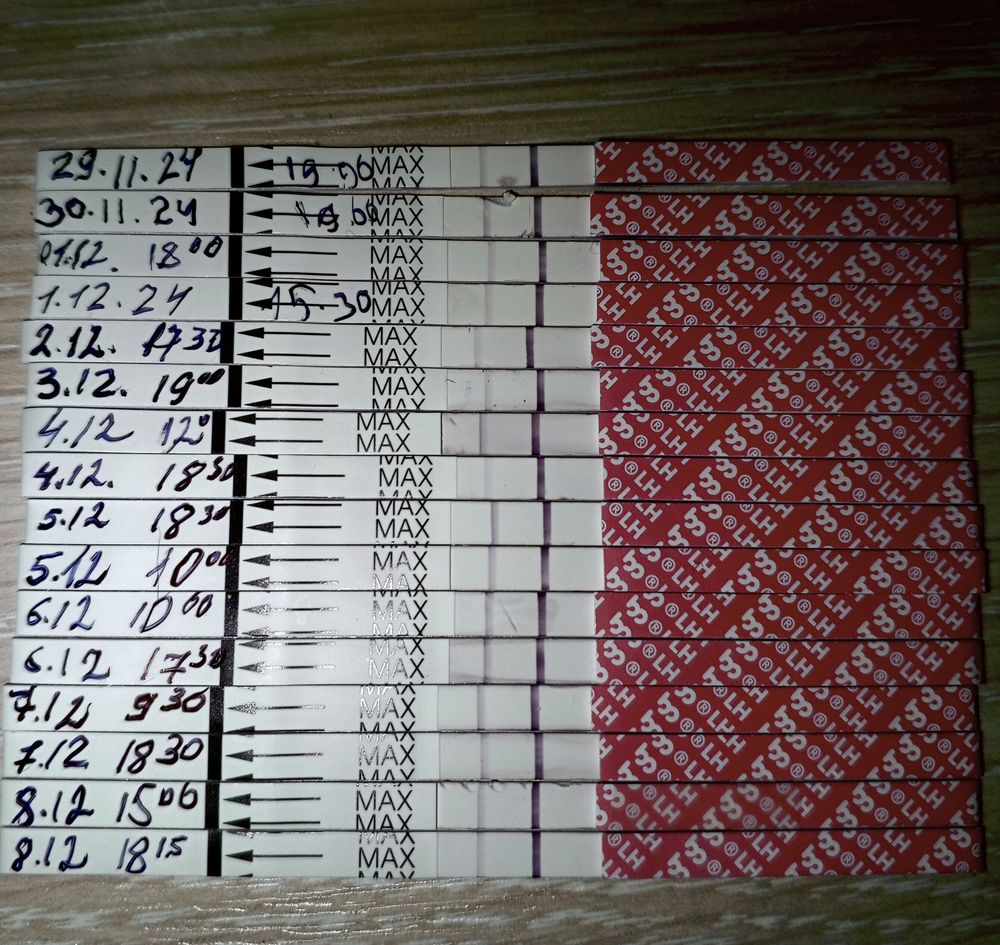 29.11.24 19.00 MAX
30.11.24 MAX
01.12. 18 00 MAX
1.12.24 15-30 MAX
2.12. 17 30 MAX
MAX
3.12. 19 00 MAX
4.12 12 0 MAX
MAX
4.12. 18 30 MAX
5.12 18 30 MAX
5.12 10 00 MAX
6.12 10 00 MAX
6.12 17 30 MAX
7.12 9 30 MAX
7.12 18 30 MAX
8.12 15 00 MAX
8.12 18 15 MAX
LH